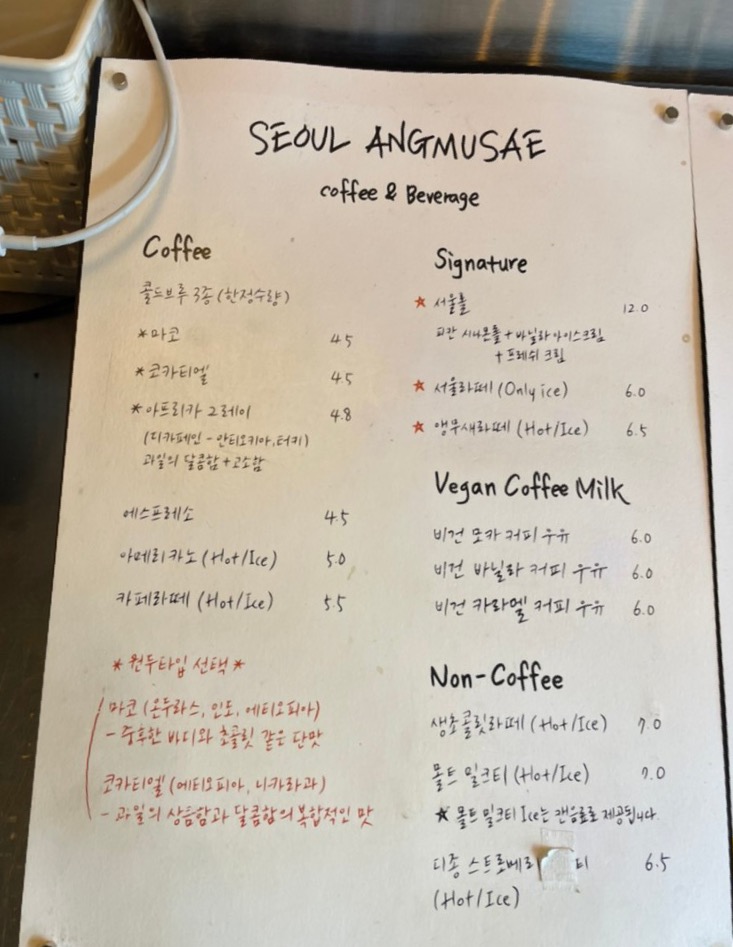 SEOUL ANGMUSAE
coffee & Beverage
Coffee
콜드브루 3종 (한정수량)
*마코 4.5
*코카티엘 4.5
*아프리카 그레이 4.8
(디카페인 - 안티오키아, 터키)
과일의 달콤함 + 고소함
에스프레소 4.5
아메리카노 (Hot/Ice) 5.0
카페라떼 (Hot/Ice) 5.5
* 원두타입 선택 *
마코 (온두라스, 인도, 에티오피아)
- 중후한 바디와 초콜릿 같은 단맛
코카티엘 (에티오피아, 니카라과)
- 과일의 상큼함과 달콤함의 복합적인 맛
Signature
★ 서울롤 12.0
피칸 시나몬롤 + 바닐라아이스크림
+ 프레쉬 크림
★ 서울라떼 (Only ice) 6.0
★ 앵무새라떼 (Hot/Ice) 6.5
Vegan Coffee Milk
비건 모카 커피 우유 6.0
비건 바닐라 커피 우유 6.0
비건 카라멜 커피 우유 6.0
Non-Coffee
생초콜릿라떼 (Hot/Ice) 7.0
몰트 밀크티 (Hot/Ice) 7.0
★ 몰트 밀크티 Ice는 캔음료로 제공됩니다.
디종 스트로베리 티 6.5
(Hot/Ice)